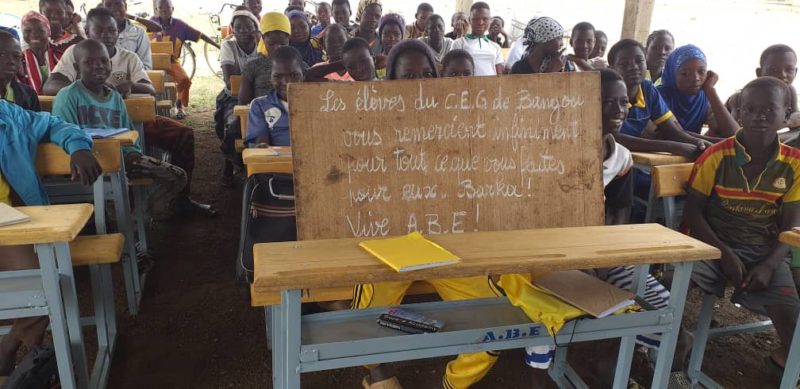 Les élèves du C.E.G de Bangou
vous remercient infiniment
pour tout ce que vous faites
pour eux. Barka!
Vive A.B.E!
A.B.E